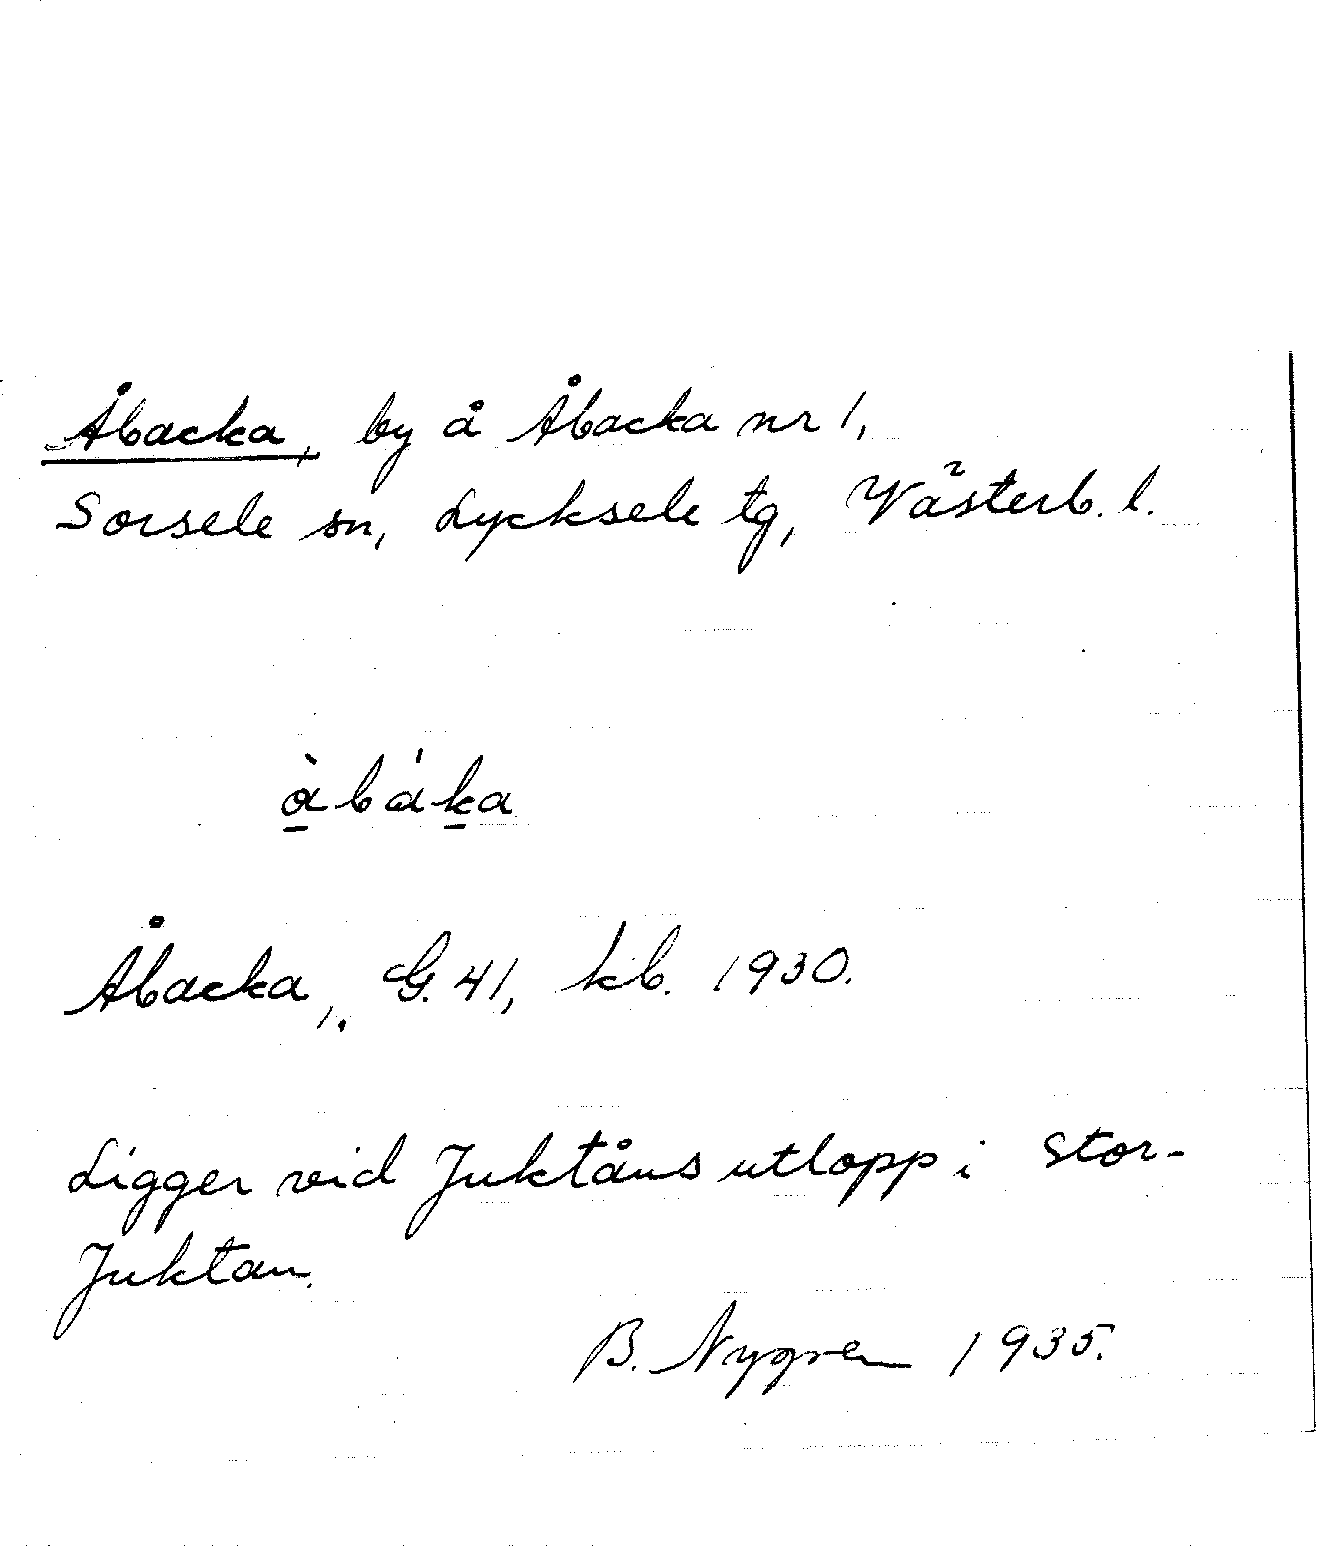 Åbacka, by å Åbacka nr 1,
Sorsele sn, Lycksele tg, Västerb. l.
å̀báka
Åbacka, G. 41, kb. 1930.
Ligger vid Juktåns utlopp i Stor-
Juktan.
B. Nygren 1935.